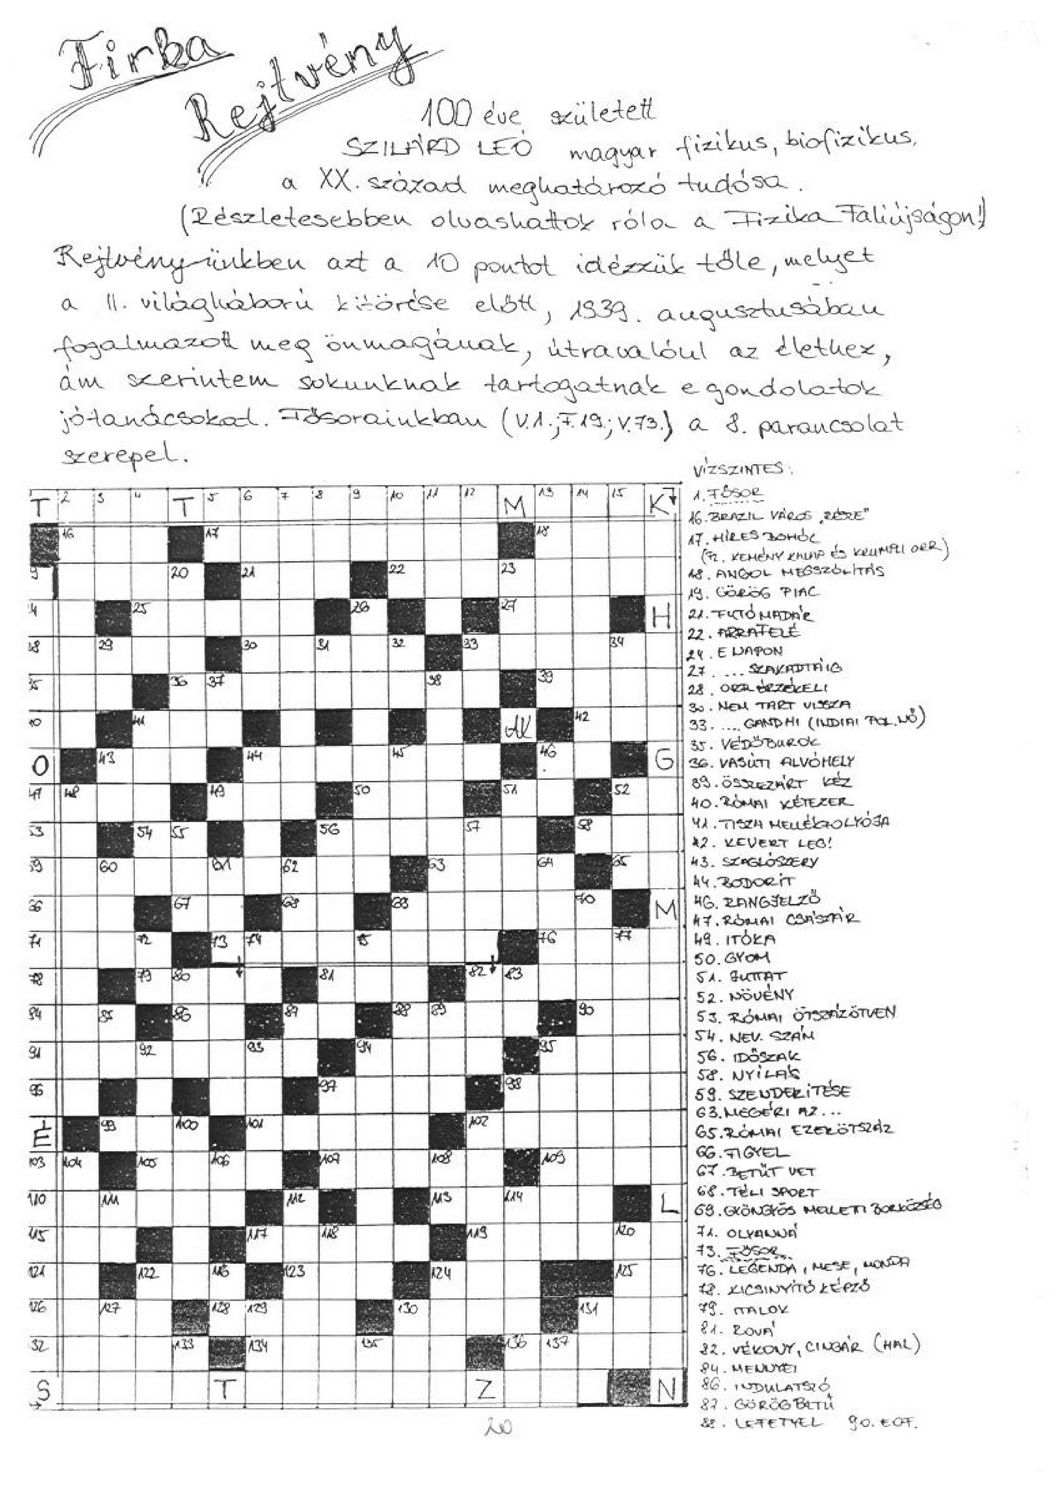 Firka
Rejtvény
100 éve született
SZILÁRD LEÓ magyar fizikus, biofizikus,
a XX. század meghatározó tudósa.
(Részletesebben olvashattok róla a Fizika Faliújságon!)
Rejtvényünkben azt a 10 pontot idézzük tőle, melyet
a II. világháború kitörése előtt, 1939. augusztusában
fogalmazott meg önmagának, útravalóul az élethez,
ám szerintem sokunknak tartogatnak e gondolatok
jótanácsokat. Fősorainkban (V.1.; F.19.; V.73.) a 8. parancsolat
szerepel.
VÍZSZINTES:
1. FŐSOR
16. BRAZIL VÁROS „RÉSZE"
17. HÍRES BOHÓC
(KEMÉNY KALAP ÉS KRUMPLI ORR)
18. ANGOL MEGSZÓLÍTÁS
19. GÖRÖG PIAC
21. FUTÓMADÁR
22. ARRAFELÉ
24. E NAPON
27. ... SZAKADTÁIG
28. ORR ÉRZÉKELI
30. NEM TART VISSZA
33. .... GANDHI (INDIAI POL. NŐ)
35. VÉDŐBUROK
36. VASÚTI ALVÓHELY
39. ÖSSZEZÁRT KÉZ
40. RÓMAI KÉTEZER
41. TISZA MELLÉKFOLYÓJA
42. KEVERT LEG!
43. SZAGLÓSZERV
44. BODORÍT
46. RANGJELZŐ
47. RÓMAI CSÁSZÁR
49. ITÓKA
50. GYOM
51. JUTTAT
52. NÖVÉNY
53. RÓMAI ÖTSZÁZÖTVEN
54. NÉV. SZÁM
56. IDŐSZAK
58. NYÍLÁS
59. SZENDERÍTÉSE
63. MEGÉRI AZ...
65. RÓMAI EZERÖTSZÁZ
66. FIGYEL
67. BETŰT VET
68. TÉLI SPORT
69. GYÖNGYÖS MELLETTI BORKÖZSÉG
71. OLYANNÁ
73. FŐSOR
76. LEGENDA, MESE, MONDA
78. KICSINYÍTŐ KÉPZŐ
79. ITALOK
81. ROVÁ
82. VÉKONY, CINGÁR (HAL)
84. MENNYEI
86. INDULATSZÓ
87. GÖRÖG BETŰ
88. LEFETYEL 90. EGF.
T 2 3 4 T 5 6 7 8 9 10 11 12 M 13 14 15 K
16 17 18
20 21 22 23
25 26 27 H
29 30 31 32 33 34
36 37 38 39
41 42
O 43 44 45 46 G
47 48 49 50 51 52
53 54 55 56 57 58
59 60 61 62 63 64 65
67 68 69 70 M
72 73 74 75 76 77
78 79 80 81 82 83
84 85 86 87 88 89 90
91 92 93 94 95
97 98
É 99 100 101 102
103 104 105 106 107 108 109
110 111 112 113 114 L
117 118 119 120
121 122 123 124 125
126 127 128 129 130 131
133 134 135 136 137
S T Z N
20